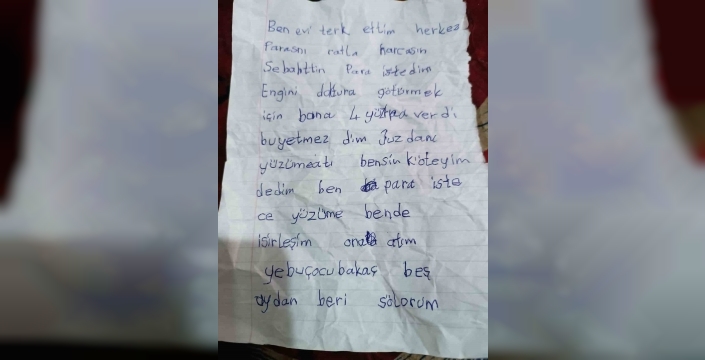 Ben evi terk ettim herkes
Parasnı ratla harcasın
Sebahttin Para istedim
Engini doktura götürmek
için bana 4 yüz verdi
buyetmez dim
yüzümeatı bensin köteyim
dedim ben para iste
ce yüzüme bende
atım
yebuçocubakaç beş
aydan beri sölorum